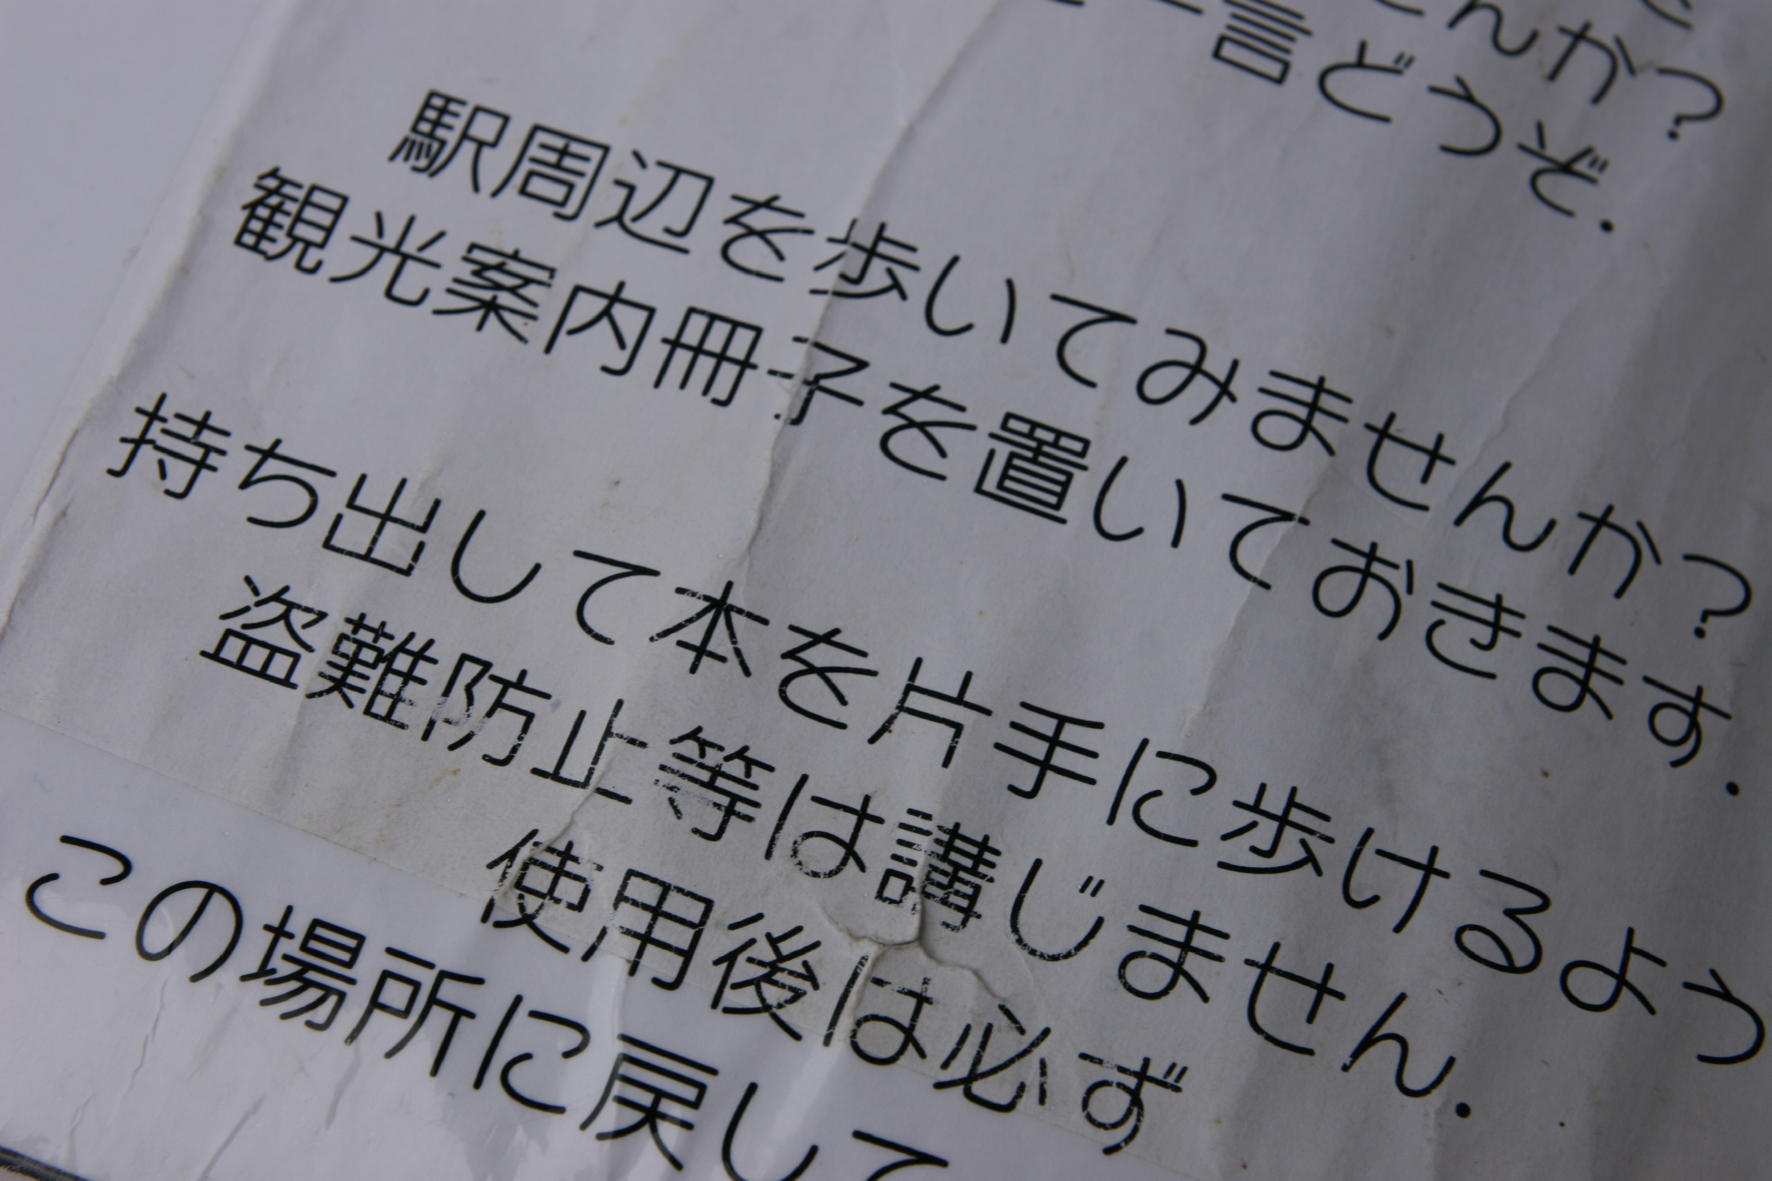 んか？
一言どうぞ．
駅周辺を歩いてみませんか？
観光案内冊子を置いておきます．
持ち出して本を片手に歩けるよう
盗難防止等は講じません．
使用後は必ず
この場所に戻して